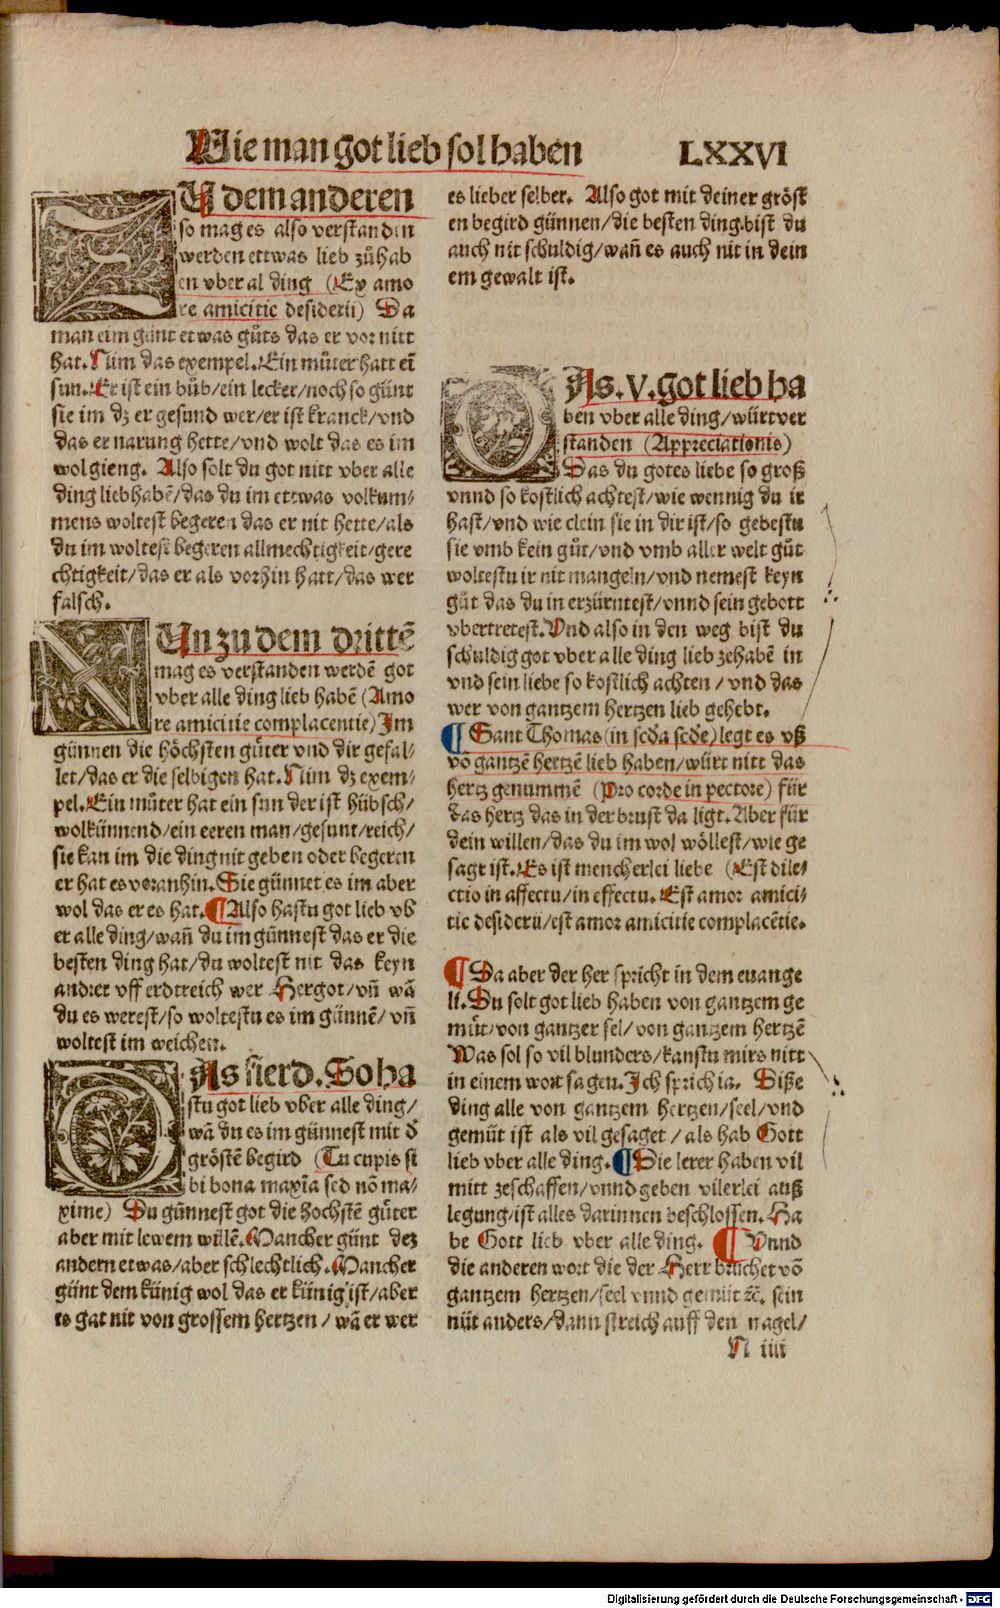 Wie man got lieb sol haben LXXVI
ZU dem anderen
so mag es also verstanden
werden ettwas lieb zůhab
en vber al ding (Ex amo
re amicitie desiderii) Da
man eim günt etwas gůts das er vor nitt
hat. Nim das exempel. Ein můter hatt eī
sun. Er ist ein bůb/ein lecker/noch so günt
sie im dz er gesund wer/er ist kranck/vnd
das er narung hette/vnd wolt das es im
wol gieng. Also solt du got nitt vber alle
ding lieb habē/das du im ettwas volkum⸗
mens woltest begeren das er nit hette/als
du im woltest begeren allmechtigkeit/gere
chtigkeit/das er als vorhin hatt/das wer
falsch.
NUn zu dem drittē
mag es verstanden werdē got
vber alle ding lieb habē (Amo
re amicitie complacentie) Im
günnen die höchsten güter vnd dir gefal⸗
let/das er die selbigen hat. Nim dz exem⸗
pel. Ein můter hat ein sun der ist hübsch/
wolkünnend/ein eeren man/gesunt/reich/
sie kan im die ding nit geben oder begeren
er hat es voranhin. Sie günnet es im aber
wol das er es hat. ¶ Also hastu got lieb vb
er alle ding/wañ du im günnest das er die
besten ding hat/du woltest nit das keyn
andrer vff erdtreich wer Hergot/vñ wā
du es werest/so woltestu es im günnē/vñ
woltest im weichen.
DAs fierd. So ha
stu got lieb vber alle ding/
wā du es im günnest mit d̄
gröstē begird (Tu cupis si
bi bona maxīa sed nō ma⸗
xime) Du günnest got die hochstē güter
aber mit lewem willē. Mancher günt dez
andern etwas/aber schlechtlich. Mancher
günt dem künig wol das er künig ist/aber
es gat nit von grossem hertzen/wā er wer
es lieber selber. Also got mit deiner gröst
en begird günnen/die besten ding. bist du
auch nit schuldig/wañ es auch nit in dein
em gewalt ist.
DAs .V. got lieb ha
ben vber alle ding/würt ver
standen (Appreciationis)
Das du gotes liebe so groß
vnnd so kostlich achtest/wie wennig du ir
hast/vnd wie clein sie in dir ist/so gebestu
sie vmb kein gůt/vnd vmb aller welt gůt
woltestu ir nit mangeln/vnd nemest keyn
gůt das du in erzürntest/vnnd sein gebott
vbertretest. Vnd also in den weg bist du
schuldig got vber alle ding lieb zehabē in
vnd sein liebe so kostlich achten/vnd das
wer von gantzem hertzen lieb gehebt.
¶ Sant Thomas (in scd̄a scd̄e) legt es vß
vō gantzē hertzē lieb haben/würt nitt das
hertz genummē (Pro corde in pectore) für
das hertz das in der brust da ligt. Aber für
dein willen/das du im wol wöllest/wie ge
sagt ist. Es ist mencherlei liebe (Est dile⸗
ctio in affectu/in effectu. Est amor amici⸗
tie desiderii/est amor amicitie complacētie.
¶ Da aber der her spricht in dem euange
li. Du solt got lieb haben von gantzem ge
müt/von gantzer sel/von gantzem hertzē
Was sol so vil blunders/kanstu mirs nitt
in einem wort sagen. Ich sprich ia. Diße
ding alle von gantzem hertzen/seel/vnd
gemüt ist als vil gesaget/als hab Gott
lieb vber alle ding. ¶ Die lerer haben vil
mitt zeschaffen/vnnd geben vilerlei auß
legung/ist alles darinnen beschlossen. Ha
be Gott lieb vber alle ding. ¶ Vnnd
die anderen wort die der Herr bruchet vō
gantzem hertzen/seel vnnd gemüt ꝛē. sein
nüt anders/dann streich auff den nagel/
N iiii
Digitalisierung gefördert durch die Deutsche Forschungsgemeinschaft - DFG